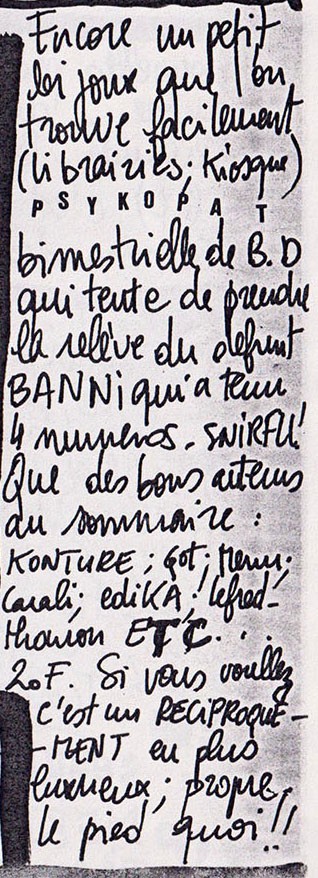 Encore un petit
bijoux que l'on
trouve facilement
(librairies; Kiosque)
PSYKOPAT
bimestrielle de B.D
qui tente de prendre
la relève du defunt
BANNi qui a tenu
4 numeros. SNIRFLL!
Que des bons auteurs
au sommaire :
KONTURE ; Got ; Menu ;
Carali ; ediKA ; lefred-
thouron ETC...
20F. Si vous voullez
c'est un RECIPROQUE-
-MENT en plus
luxueux ; propre.
le pied quoi!!